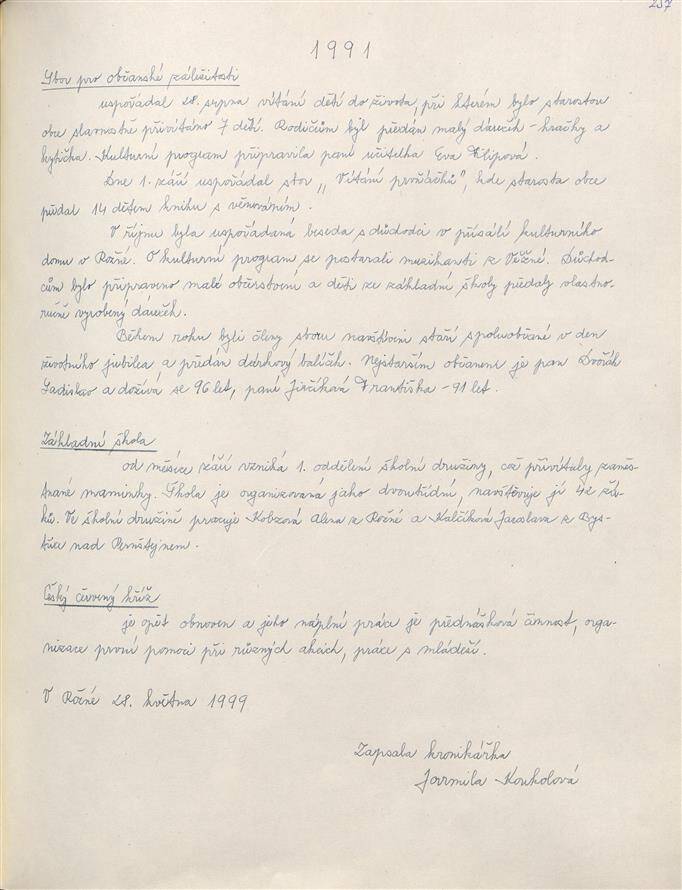 237
1991
Sbor pro občanské záležitosti
uspořádal 28. srpna vítání dětí do života, při kterém bylo starostou
obce slavnostně přivítáno 7 dětí. Rodičům byl předán malý dáreček - hračky a
kytička. Kulturní program připravila paní učitelka Eva Filipová.
Dne 1. září uspořádal sbor „Vítání prvňáčků", kde starosta obce
předal 14 dětem knihu s věnováním.
V říjnu byla uspořádaná beseda s důchodci v přísálí kulturního
domu v Rožné. O kulturní program se postarali muzikanti z Věžné. Důchod-
cům bylo připraveno malé občerstvení a děti ze základní školy předaly vlastno-
ručně vyrobený dáreček.
Během roku byli členy sboru navštíveni starší spoluobčané v den
životního jubilea a předán dárkový balíček. Nejstarším občanem je pan Dvořák
Ladislav a dožívá se 96 let, paní Jirčíková Františka - 91 let.
Základní škola
od měsíce září vzniká 1. oddělení školní družiny, což přivítaly zaměs-
tnané maminky. Škola je organizovaná jako dvoutřídní, navštěvuje ji 42 žá-
ků. Ve školní družině pracuje Kobzová Alena z Rožné a Kalčíková Jaroslava z Bys-
třice nad Pernštejnem.
Český červený kříž
je opět obnoven a jeho náplní práce je přednášková činnost, orga-
nizace první pomoci při různých akcích, práce s mládeží.
V Rožné 28. května 1999
Zapsala kronikářka
Jarmila Koukolová